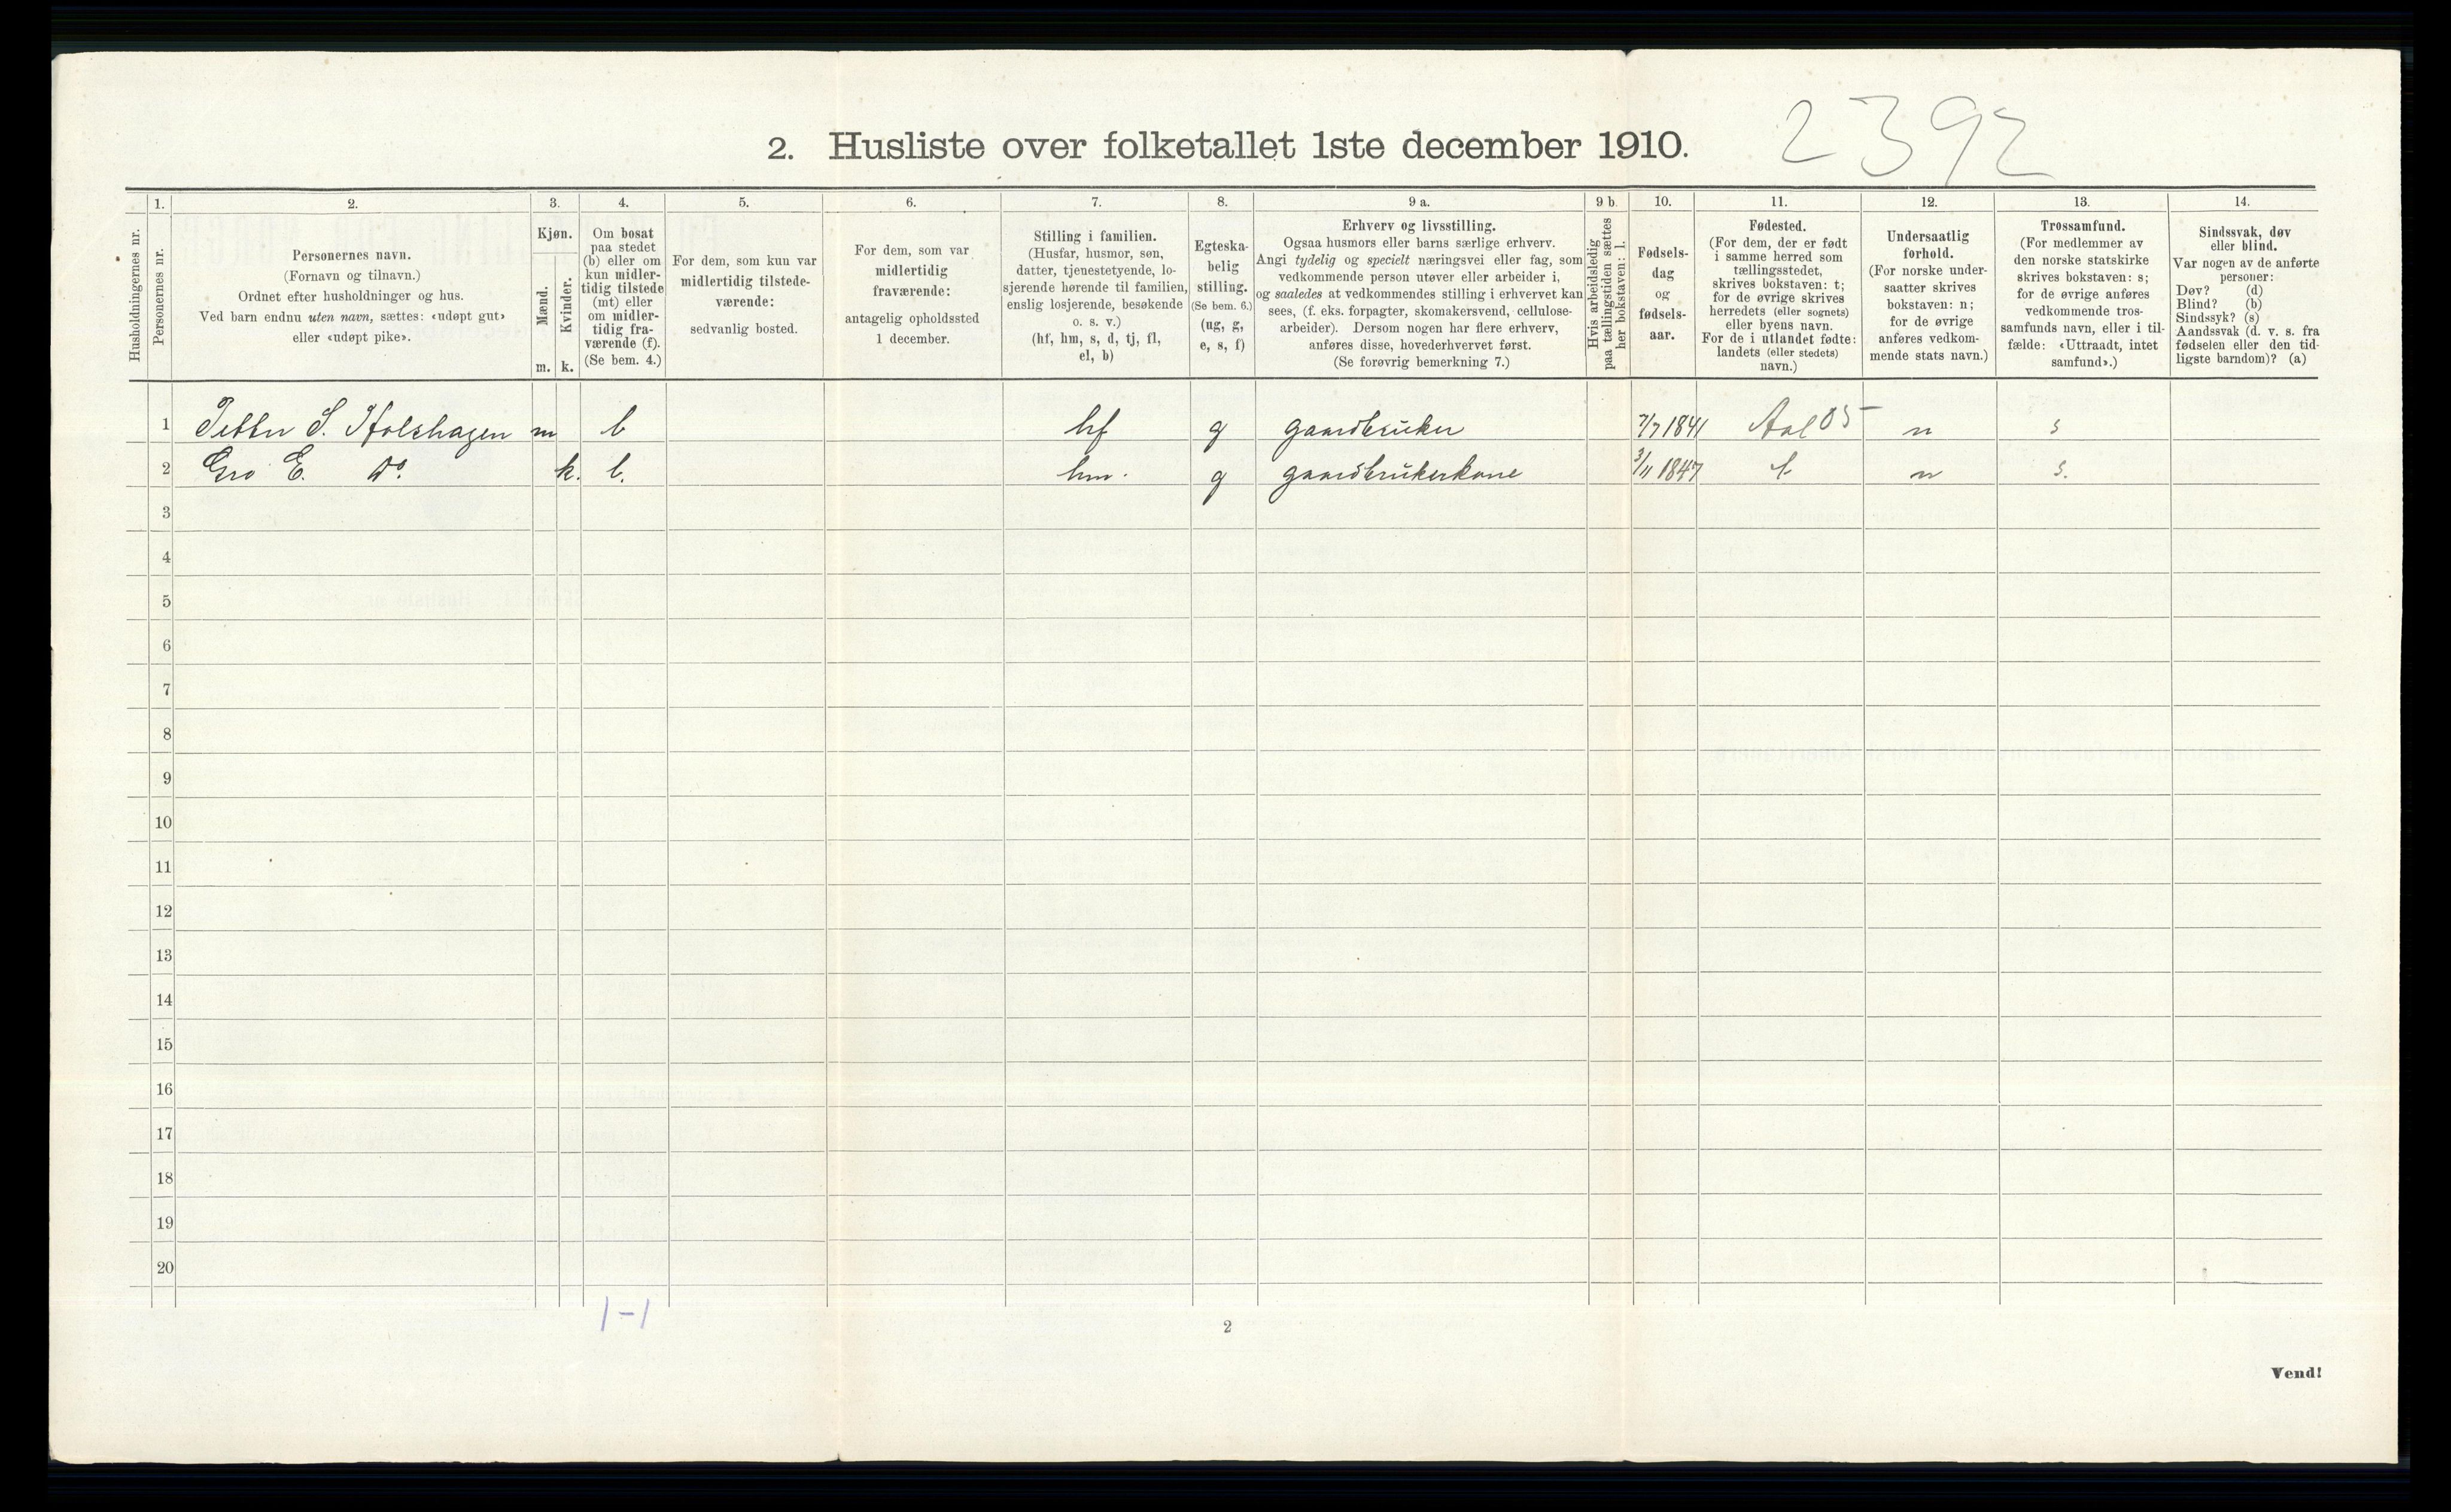 2392
2. Husliste over folketallet 1ste december 1910.
1. 2. 3. 4. 5. 6. 7. 8. 9 a. 9 b. 10. 11. 12. 13. 14.
Husholdningernes nr.
Personernes nr.
Personernes navn.
(Fornavn og tilnavn.)
Ordnet efter husholdninger og hus.
Ved barn endnu uten navn, sættes: «udøpt gut»
eller «udøpt pike».
Kjøn.
Mænd.
Kvinder.
m. k.
Om bosat
paa stedet
(b) eller om
kun midler-
tidig tilstede
(mt) eller
om midler-
tidig fra-
værende (f).
(Se bem. 4.)
For dem, som kun var
midlertidig tilstede-
værende:
sedvanlig bosted.
For dem, som var
midlertidig
fraværende:
antagelig opholdssted
1 december.
Stilling i familien.
(Husfar, husmor, søn,
datter, tjenestetyende, lo-
sjerende hørende til familien,
enslig losjerende, besøkende
o. s. v.)
(hf, hm, s, d, tj, fl,
el, b)
Egteska-
belig
stilling.
(Se bem. 6.)
(ug, g,
e, s, f)
Erhverv og livsstilling.
Ogsaa husmors eller barns særlige erhverv.
Angi tydelig og specielt næringsvei eller fag, som
vedkommende person utøver eller arbeider i,
og saaledes at vedkommendes stilling i erhvervet kan
sees, (f. eks. forpagter, skomakersvend, cellulose-
arbeider). Dersom nogen har flere erhverv,
anføres disse, hovederhvervet først.
(Se forøvrig bemerkning 7.)
Hvis arbeidsledig
paa tællingstiden sættes
her bokstaven: l.
Fødsels-
dag
og
fødsels-
aar.
Fødested.
(For dem, der er født
i samme herred som
tællingsstedet,
skrives bokstaven: t;
for de øvrige skrives
herredets (eller sognets)
eller byens navn.
For de i utlandet fødte:
landets (eller stedets)
navn.)
Undersaatlig
forhold.
(For norske under-
saatter skrives
bokstaven: n;
for de øvrige
anføres vedkom-
mende stats navn.)
Trossamfund.
(For medlemmer av
den norske statskirke
skrives bokstaven: s;
for de øvrige anføres
vedkommende tros-
samfunds navn, eller i til-
fælde: «Uttraadt, intet
samfund».)
Sindssvak, døv
eller blind.
Var nogen av de anførte
personer:
Døv? (d)
Blind? (b)
Sindssyk? (s)
Aandssvak (d. v. s. fra
fødselen eller den tid-
ligste barndom)? (a)
1 S. m b hf g gaardbruker 7/7 1841 Aal 05 n s
2 Gro E. Do. k. b. hm. g gaardbrukerkone 3/11 1847 t n s.
3
4
5
6
7
8
9
10
11
12
13
14
15
16
17
18
19
20
1-1
2
Vend!